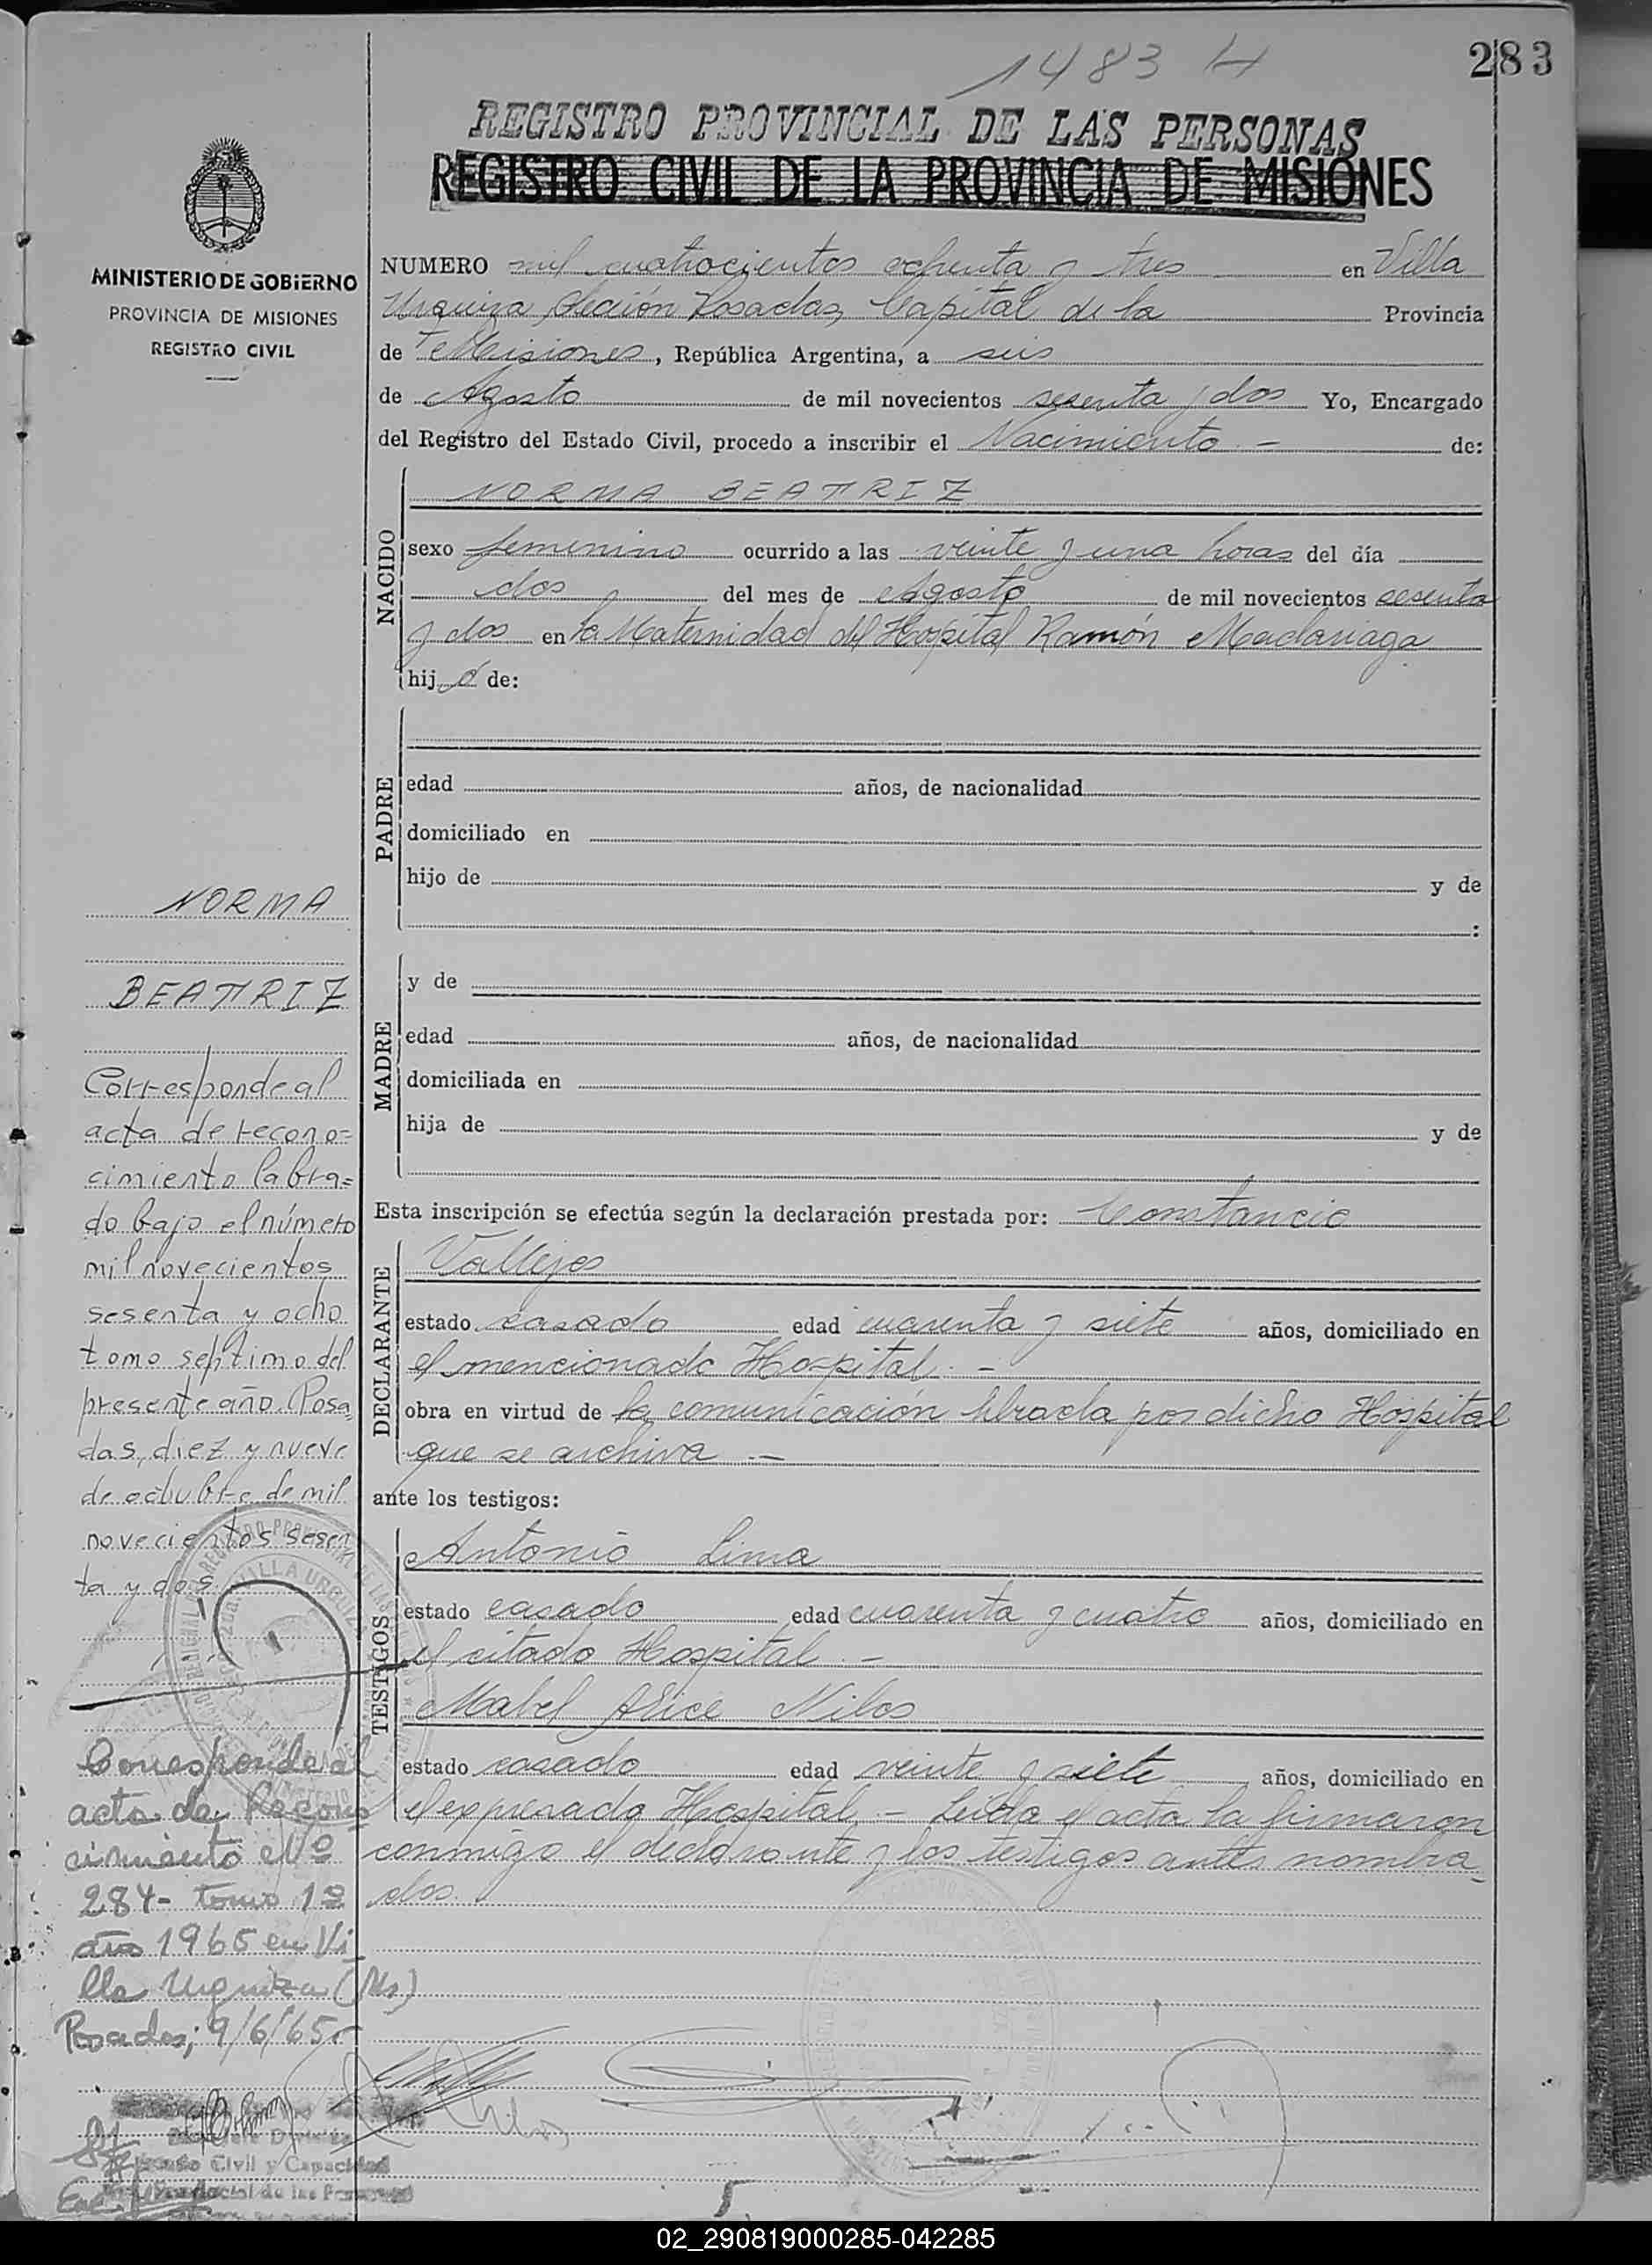 1483 H
283
REGISTRO PROVINCIAL DE LAS PERSONAS
REGISTRO CIVIL DE LA PROVINCIA DE MISIONES
MINISTERIO DE GOBIERNO
PROVINCIA DE MISIONES
REGISTRO CIVIL
NUMERO mil cuatrocientos ochenta y tres en Villa
Urquiza, Sección Posadas, Capital de la Provincia
de Misiones, República Argentina, a seis
de Agosto de mil novecientos sesenta y dos Yo, Encargado
del Registro del Estado Civil, procedo a inscribir el Nacimiento.- de:
NACIDO
NORMA BEATRIZ
sexo femenino ocurrido a las veinte y una horas del día
dos del mes de Agosto de mil novecientos sesenta
y dos en la Maternidad del Hospital Ramón Madariaga
hij a de:
PADRE
edad años, de nacionalidad
domiciliado en
hijo de y de
:
MADRE
y de
edad años, de nacionalidad
domiciliada en
hija de y de
Esta inscripción se efectúa según la declaración prestada por: Constancio
DECLARANTE
Vallejos
estado casado edad cuarenta y siete años, domiciliado en
el mencionado Hospital.-
obra en virtud de la comunicación librada por dicho Hospital
que se archiva.-
ante los testigos:
TESTIGOS
Antonio Lima
estado casado edad cuarenta y cuatro años, domiciliado en
el citado Hospital.-
Mabel Alice
estado casado edad veinte y siete años, domiciliado en
el expresado Hospital.- Leída el acta la firmaron
conmigo el declarante y los testigos antes nombra-
dos.
NORMA
BEATRIZ
Corresponde al
acta de recono=
cimiento labra=
do bajo el número
mil novecientos
sesenta y ocho
tomo septimo del
presente año. Posa
das, diez y nueve
de octubre de mil
novecientos sesen
ta y dos
Corresponde al
acta de Recono
cimiento Nº
284- tomo 1º
año 1965 en Vi
lla Urquiza (Ms)
Posadas, 9/6/65.-
Civil y Capacidad
5
02_290819000285-042285